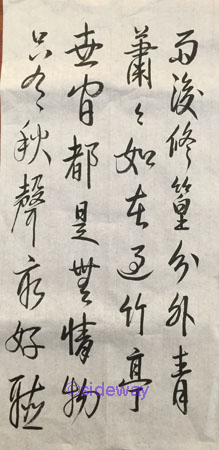 雨後修篁分外青
蕭々如在過竹亭
世间都是無情物
只有秋聲最好聽
©sideway